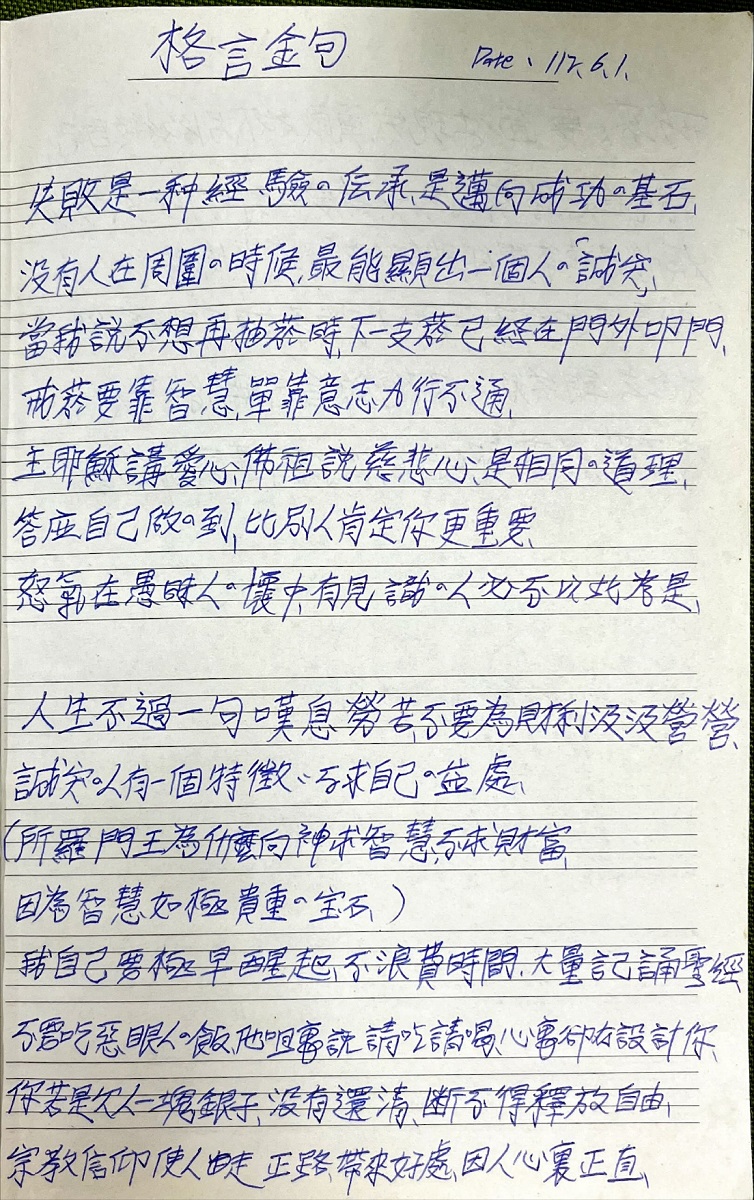 格言金句 Date、112.6.1.
失敗是一种經驗の伝承、是邁向成功の基石、
没有人在周圍の時候、最能顯出一個人の「誠实」
當我説不想再抽菸時、下一支菸已經在門外叩門、
戒菸要靠智慧、單靠意志力行不通、
主耶穌講愛心、佛祖説慈悲心、是相同の道理、
答应自己做の到、比别人肯定你更重要、
怒氣在愚昧人の懷中、有見識の人必不以此為是、
人生不過一句嘆息勞苦、不要為財利汲汲營營、
誠实の人有一個特徵：不求自己の益處、
(所羅門王為什麼向神求智慧、不求財富、
因為智慧如極貴重の宝石、)
我自己要極早醒起、不浪費時間、大量記誦聖經
不要吃惡眼人の飯、他咀裏説請吃請喝、心裏卻在設計你、
你若是欠人一塊銀子、没有還清、斷不得釋放自由、
宗教信仰使人走正路、帶來好處、因人心裏正直、